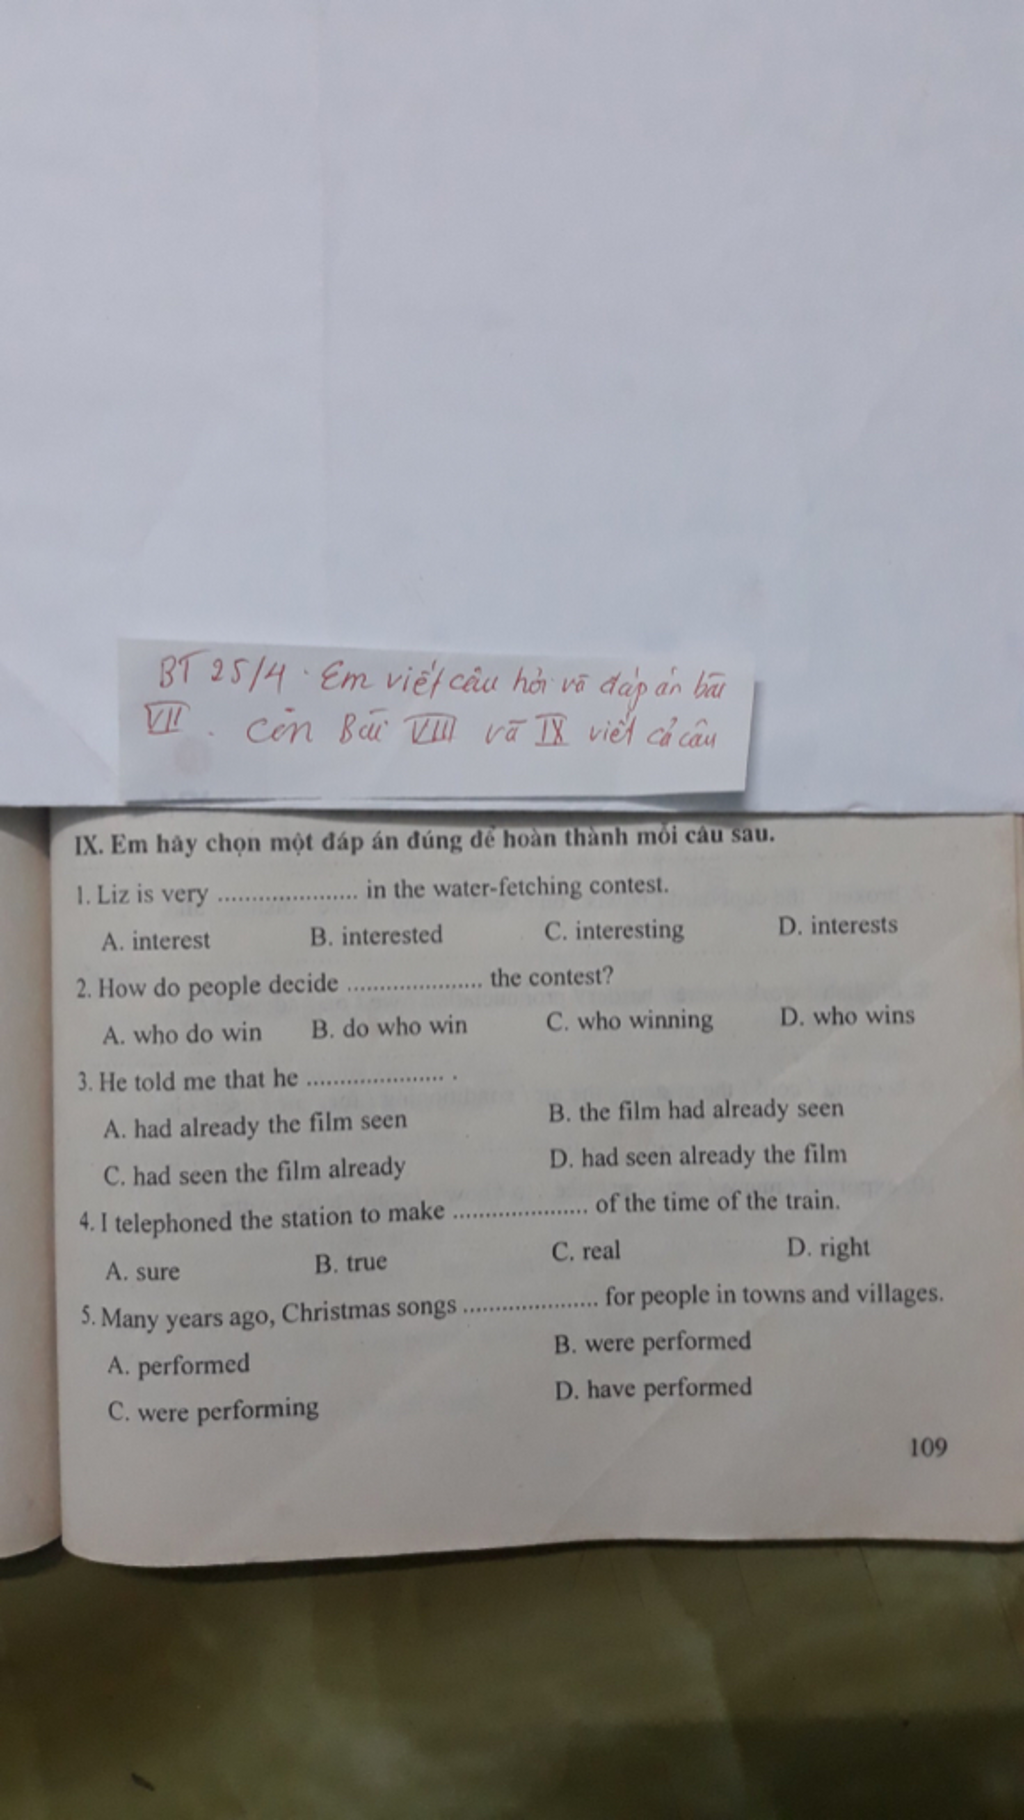 BT 25/4. Em viết câu hỏi và đáp án bài
VII. Còn Bài VIII và IX viết cả câu
IX. Em hãy chọn một đáp án đúng để hoàn thành mỗi câu sau.
1. Liz is very .................... in the water-fetching contest.
A. interest B. interested C. interesting D. interests
2. How do people decide .................... the contest?
A. who do win B. do who win C. who winning D. who wins
3. He told me that he .................... .
A. had already the film seen B. the film had already seen
C. had seen the film already D. had seen already the film
4. I telephoned the station to make .................... of the time of the train.
A. sure B. true C. real D. right
5. Many years ago, Christmas songs .................... for people in towns and villages.
A. performed B. were performed
C. were performing D. have performed
109